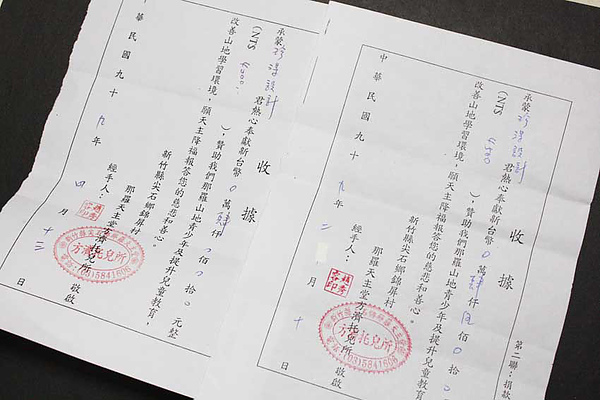 第二聯：捐款
收據
承蒙 設計 君熱心奉獻新台幣 0 萬 肆 仟 伍 佰 0 拾 0
(NT$ 4500 )，贊助我們那羅山地青少年及提升兒童教育
改善山地學習環境，願天主降福報答您的慈悲和善心。
新竹縣尖石鄉錦屏村
那羅天主堂方濟托兒所 敬啟
經手人：
方濟托兒所
中華民國九十九年二月十日
收據
承蒙 設計 君熱心奉獻新台幣 0 萬 肆 仟 0 佰 0 拾 0 元整
(NT$ 4000 )，贊助我們那羅山地青少年及提升兒童教育，
改善山地學習環境，願天主降福報答您的慈悲和善心。
新竹縣尖石鄉錦屏村
那羅天主堂方濟托兒所 敬啟
經手人：
方濟托兒所
中華民國九十九年四月十二日